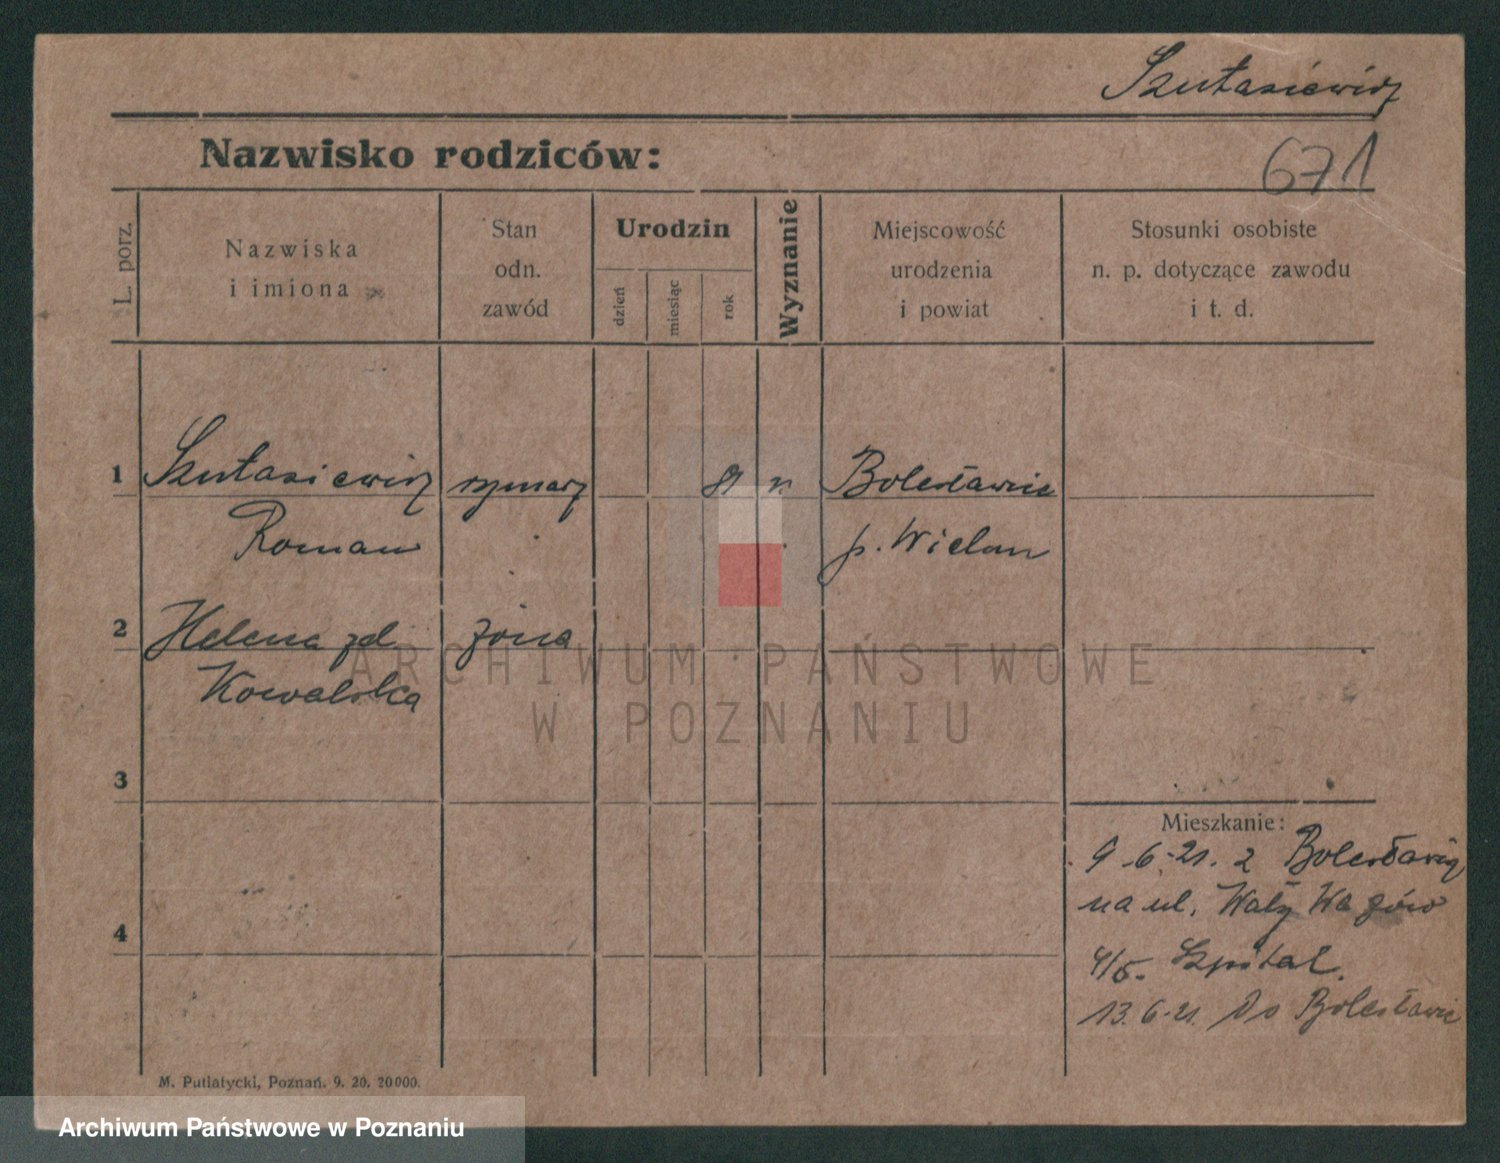 Szułasiewicz
Nazwisko rodziców:
671
L. porz.
Nazwiska
i imiona
Stan
odn.
zawód
Urodzin
dzień
miesiąc
rok
Wyznanie
Miejscowość
urodzenia
i powiat
Stosunki osobiste
n. p. dotyczące zawodu
i t. d.
1 Szułasiewicz rymarz 81 r. Bolesławiec
Roman p. Wielun
2 Helena zd żona
Kowalska
ARCHIWUM PAŃSTWOWE
W POZNANIU
3
Mieszkanie:
9.6.21. z Bolesławca
na ul. Wały Wazów
4/5. Szpital.
13.6.21. Do Bolesławic
4
M. Putiatycki, Poznań. 9. 20. 20000.
Archiwum Państwowe w Poznaniu